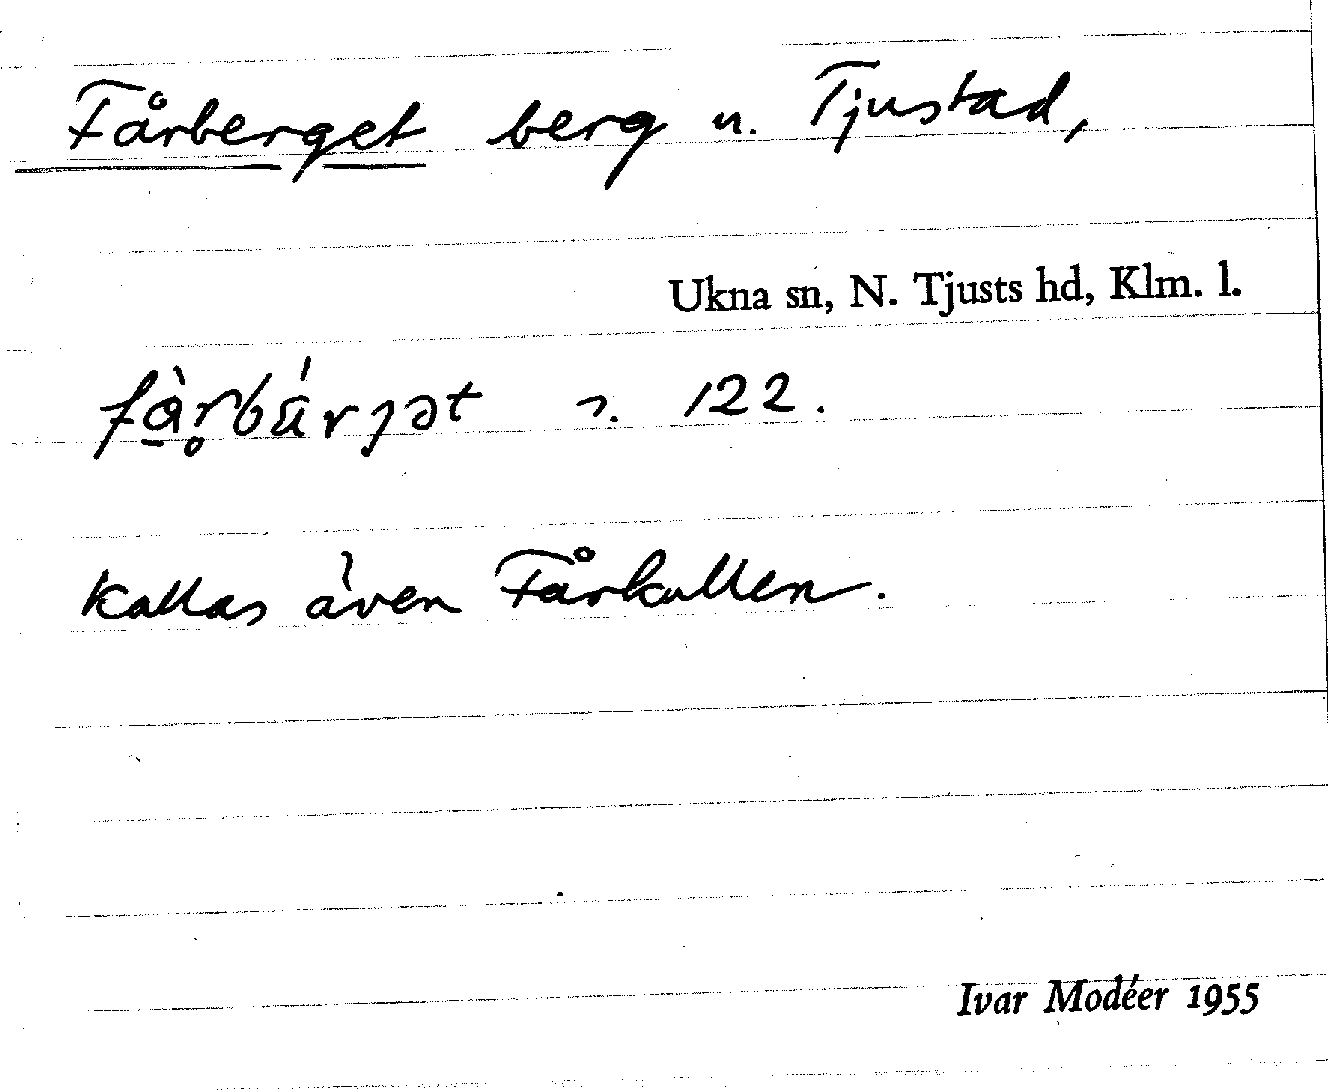 Fårberget berg n. Tjustad,
Ukna sn, N. Tjusts hd, Klm. l.
122.
kallas även Fårkullen.
Ivar Modéer 1955